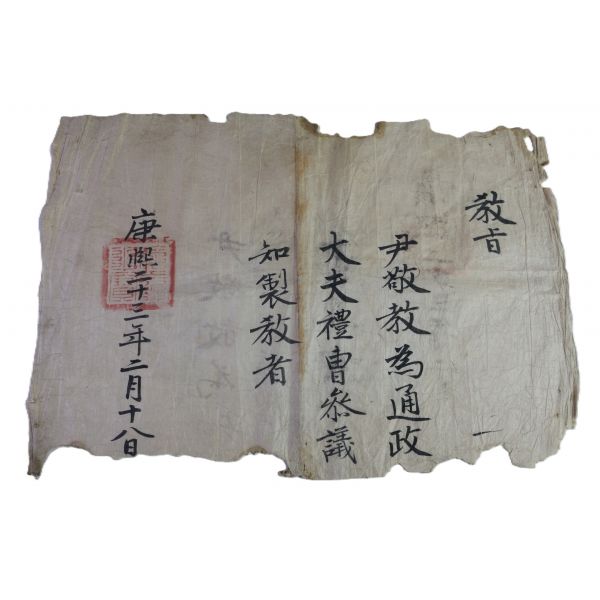 教旨
尹敬教為通政
大夫禮曺叅議
知製教者
康熙二十三年二月十八日